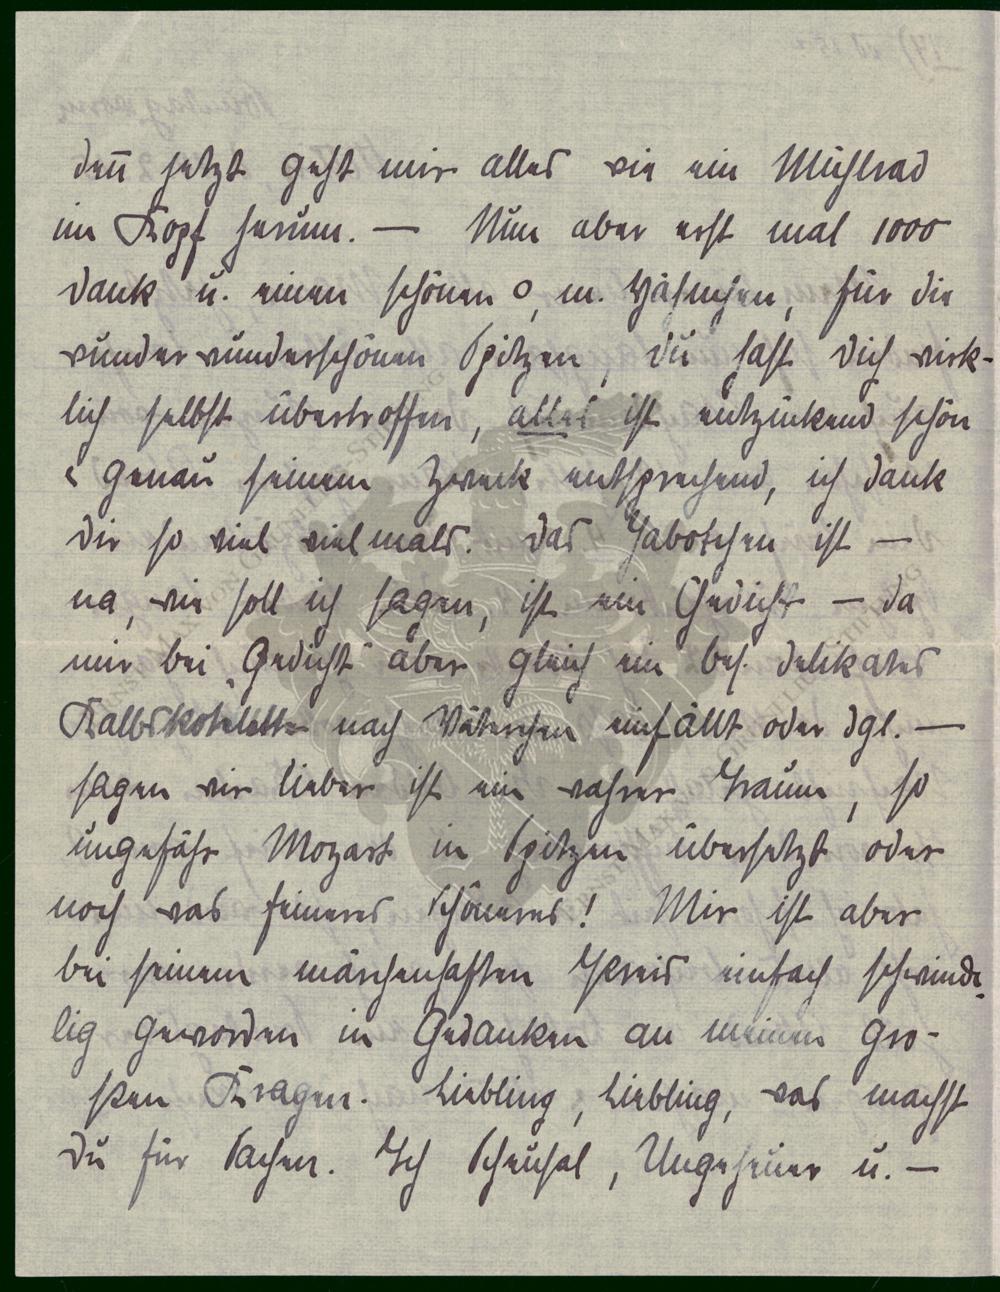 deñ jetzt geht mir alles wie ein Mühlrad
im Kopf herum. — Nun aber erst mal 1000
Dank u. einen schönen o, m. Hähnchen, für die
wunderwunderschönen Spitzen, Du hast Dich wirk-
lich selbst übertroffen, alles ist entzückend schön
& genau seinem Zweck entsprechend, ich dank
Dir so viel vielmals. Das Jabotchen ist —
na, wie soll ich sagen, ist ein Gedicht — da
mir bei „Gedicht" aber gleich ein bes. delikates
Kalbskotelette nach Väterchen einfällt oder dgl. —
sagen wir lieber ist ein wahrer Traum, so
ungefähr Mozart in Spitzen übersetzt oder
noch was feineres schöneres! Mir ist aber
bei seinem märchenhaften Preis einfach schwinde-
lig geworden in Gedanken an meinen gro-
ßen Kragen. Liebling, Liebling, was machst
Du für Sachen. Ich Scheusal, Ungeheuer u. —